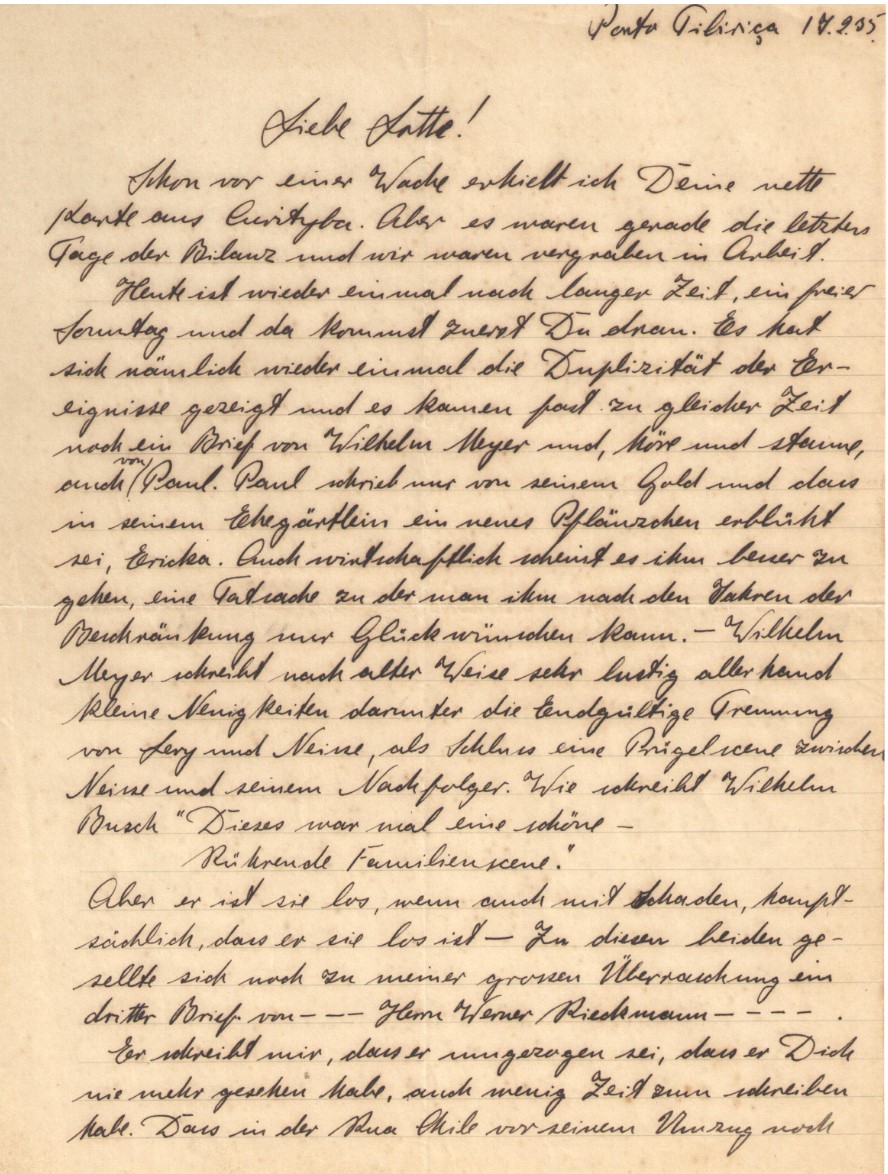 Porto Tibiriça 17.2.35.
Liebe Lotte!
Schon vor einer Woche erhielt ich Deine nette
Karte aus Curityba. Aber es waren gerade die letzten
Tage der Bilanz und wir waren vergraben in Arbeit.
Heute ist wieder einmal nach langer Zeit, ein freier
Sonntag und da kommst zuerst Du dran. Es hat
sich nämlich wieder einmal die Duplizität der Er-
eignisse gezeigt und es kamen fast zu gleicher Zeit
noch ein Brief von Wilhelm Meyer und, höre und staune,
auch von Paul. Paul schrieb nur von seinem Gold und dass
in seinem Ehegärtlein ein neues Pflänzchen erblüht
sei, Ericka. Auch wirtschaftlich scheint es ihm besser zu
gehen, eine Tatsache zu der man ihm nach den Jahren der
Beschränkung nur Glück wünschen kann. – Wilhelm
Meyer schreibt nach alter Weise sehr lustig allerhand
kleine Neuigkeiten darunter die Endgültige Trennung
von Levy und Neisse, als Schluss eine Prügelscene zwischen
Neisse und seinem Nachfolger. Wie schreibt Wilhelm
Busch "Dieses war mal eine schöne –
Rührende Familienscene."
Aber er ist sie los, wenn auch mit Schaden, haupt-
sächlich, dass er sie los ist – Zu diesen beiden ge-
sellte sich noch zu meiner grossen Überraschung ein
dritter Brief von – – – Herrn Werner Rieckmann – – – – .
Er schreibt mir, dass er umgezogen sei, dass er Dich
nie mehr gesehen habe, auch wenig Zeit zum schreiben
habe. Dass in der Rua Chile vor seinem Umzug noch